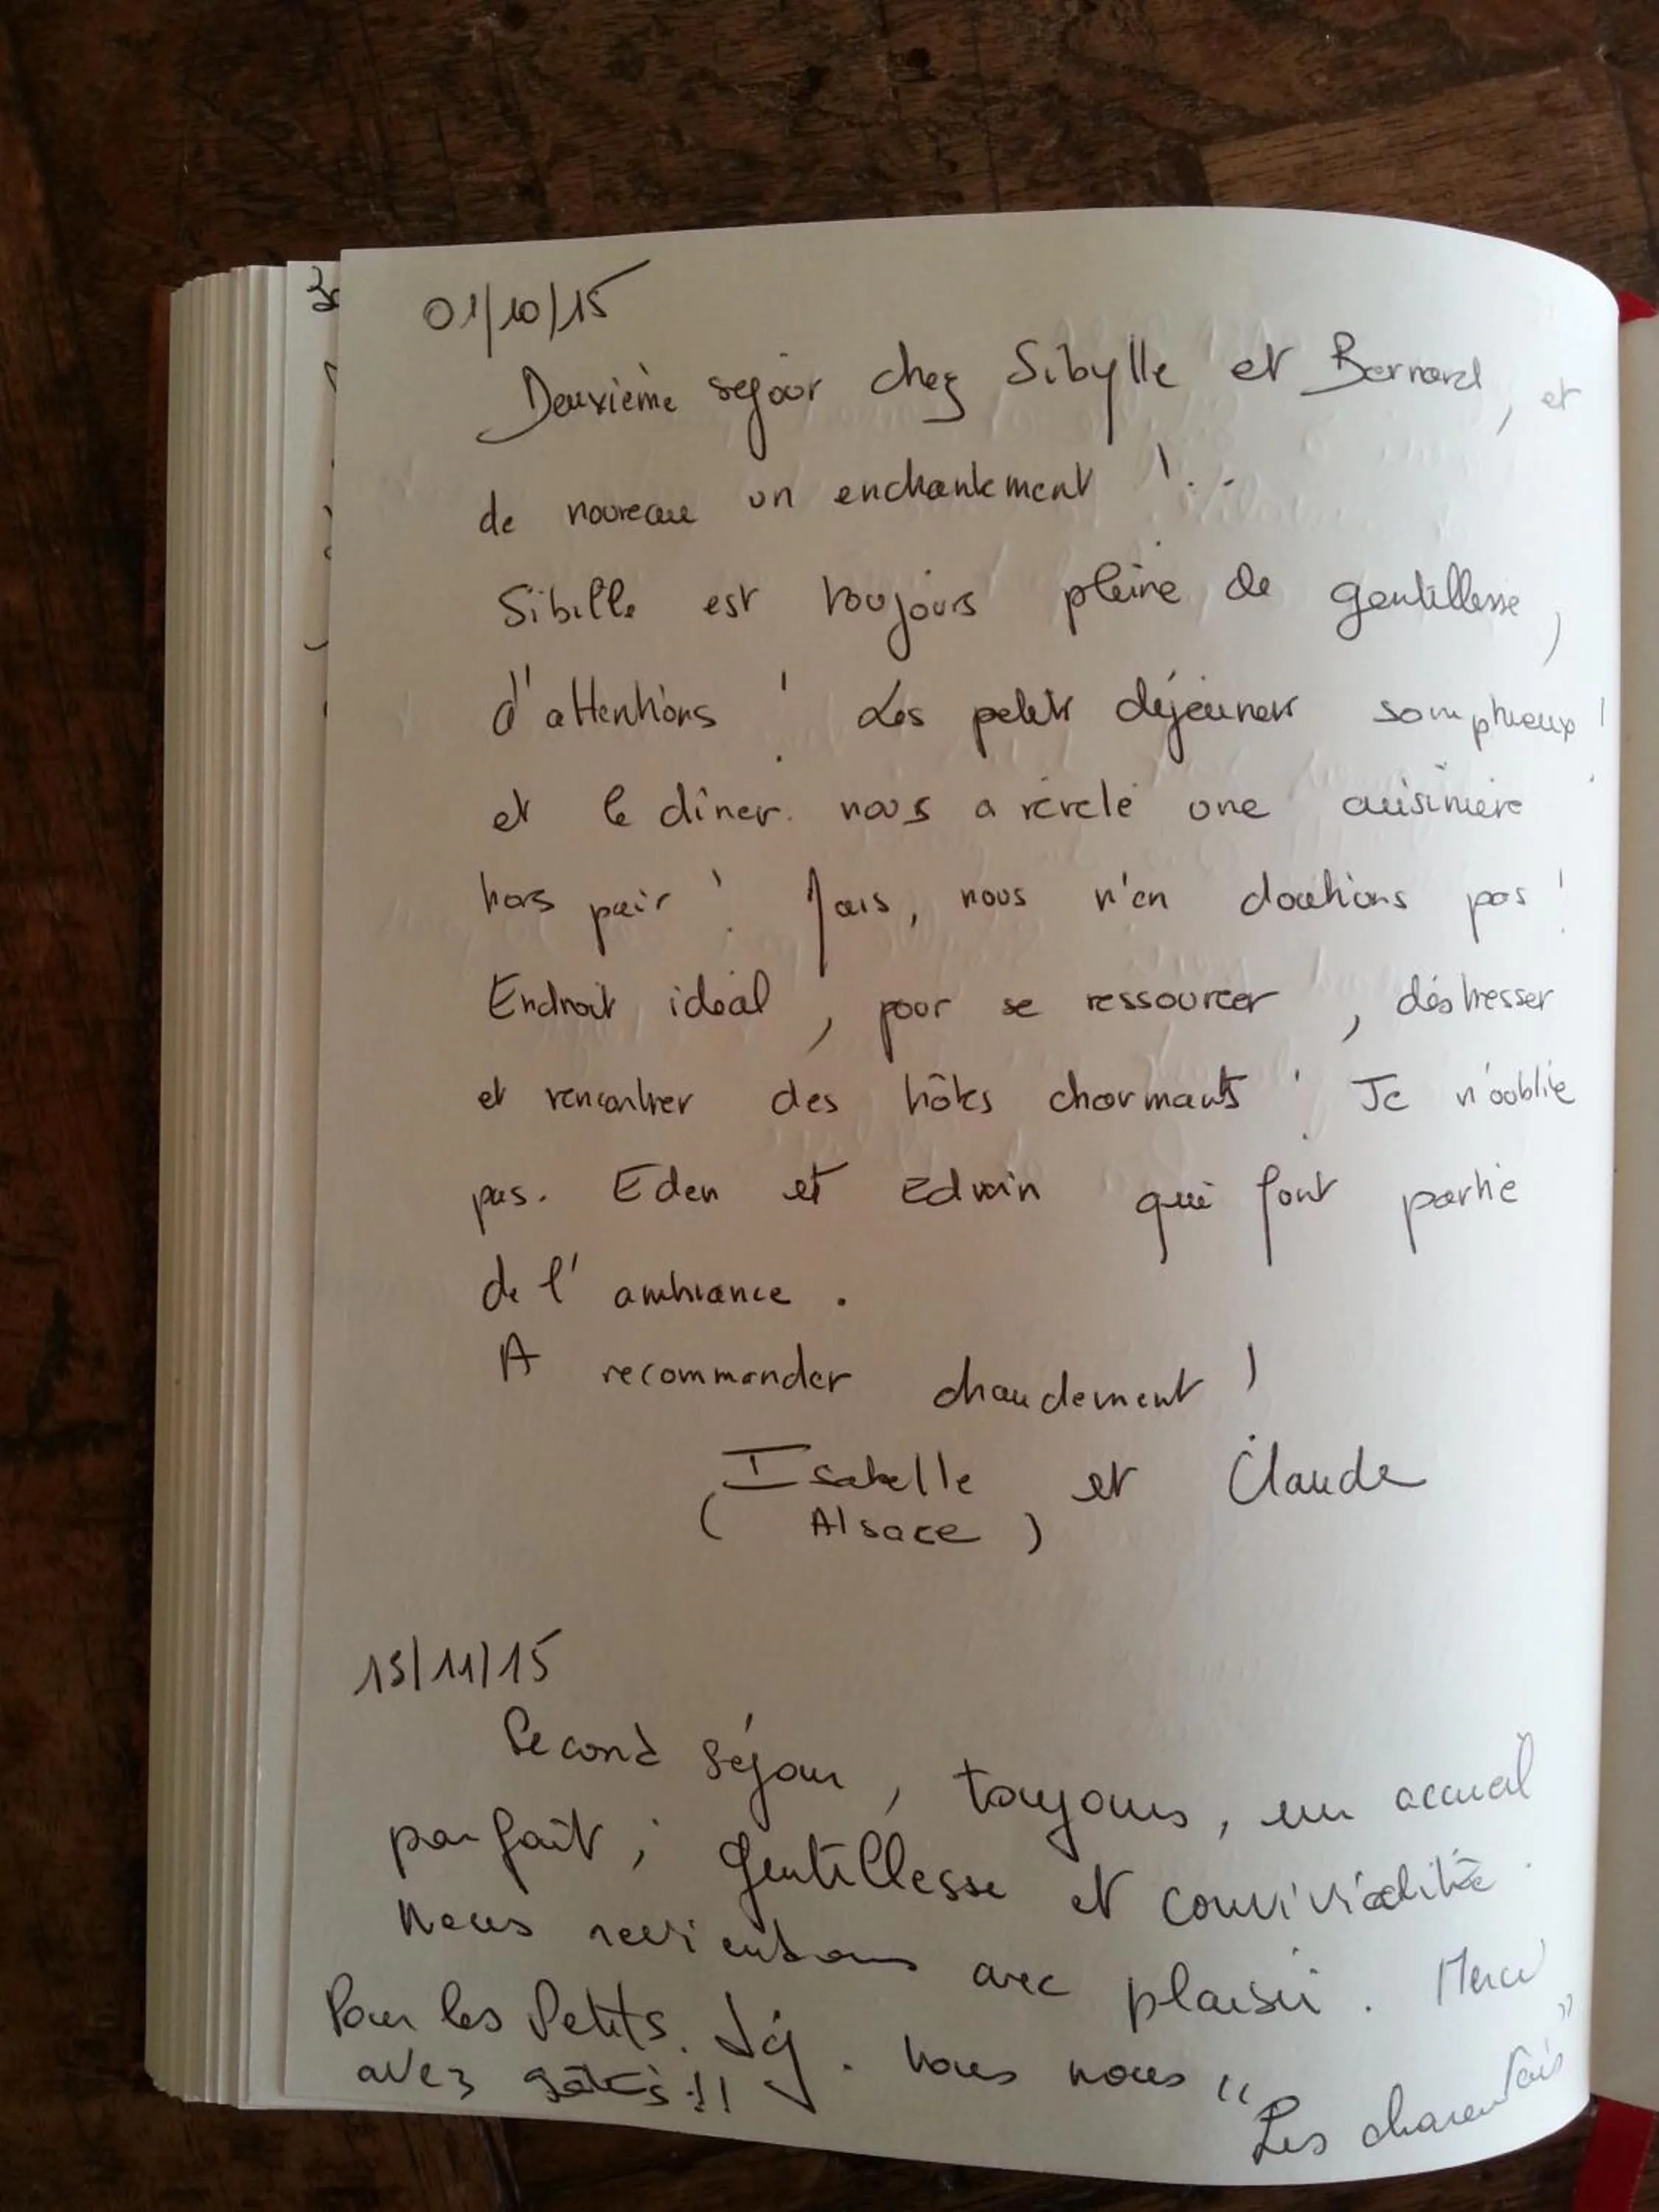 01/10/15
Deuxième sejour chez Sibylle et Bernard, et
de nouveau un enchantement !..
Sibille est toujours pleine de gentillesse,
d'attentions ! Les petits déjeuners somptueux !
et le dîner nous a révélé une cuisinière
hors pair ! Mais, nous n'en doutions pas !
Endroit idéal, pour se ressourcer, déstresser
et rencontrer des hôtes charmants ! Je n'oublie
pas. Eden et Edwin qui font partie
de l'ambiance.
A recommander chaudement !
Isabelle et Claude
(Alsace)
15/11/15
Second séjour, toujours, un accueil
parfait, gentillesse et convivialité.
Nous reviendrons avec plaisir. Merci
Pour les Petits. Déj. Vous nous
avez gâtés !!
"Les charentais"